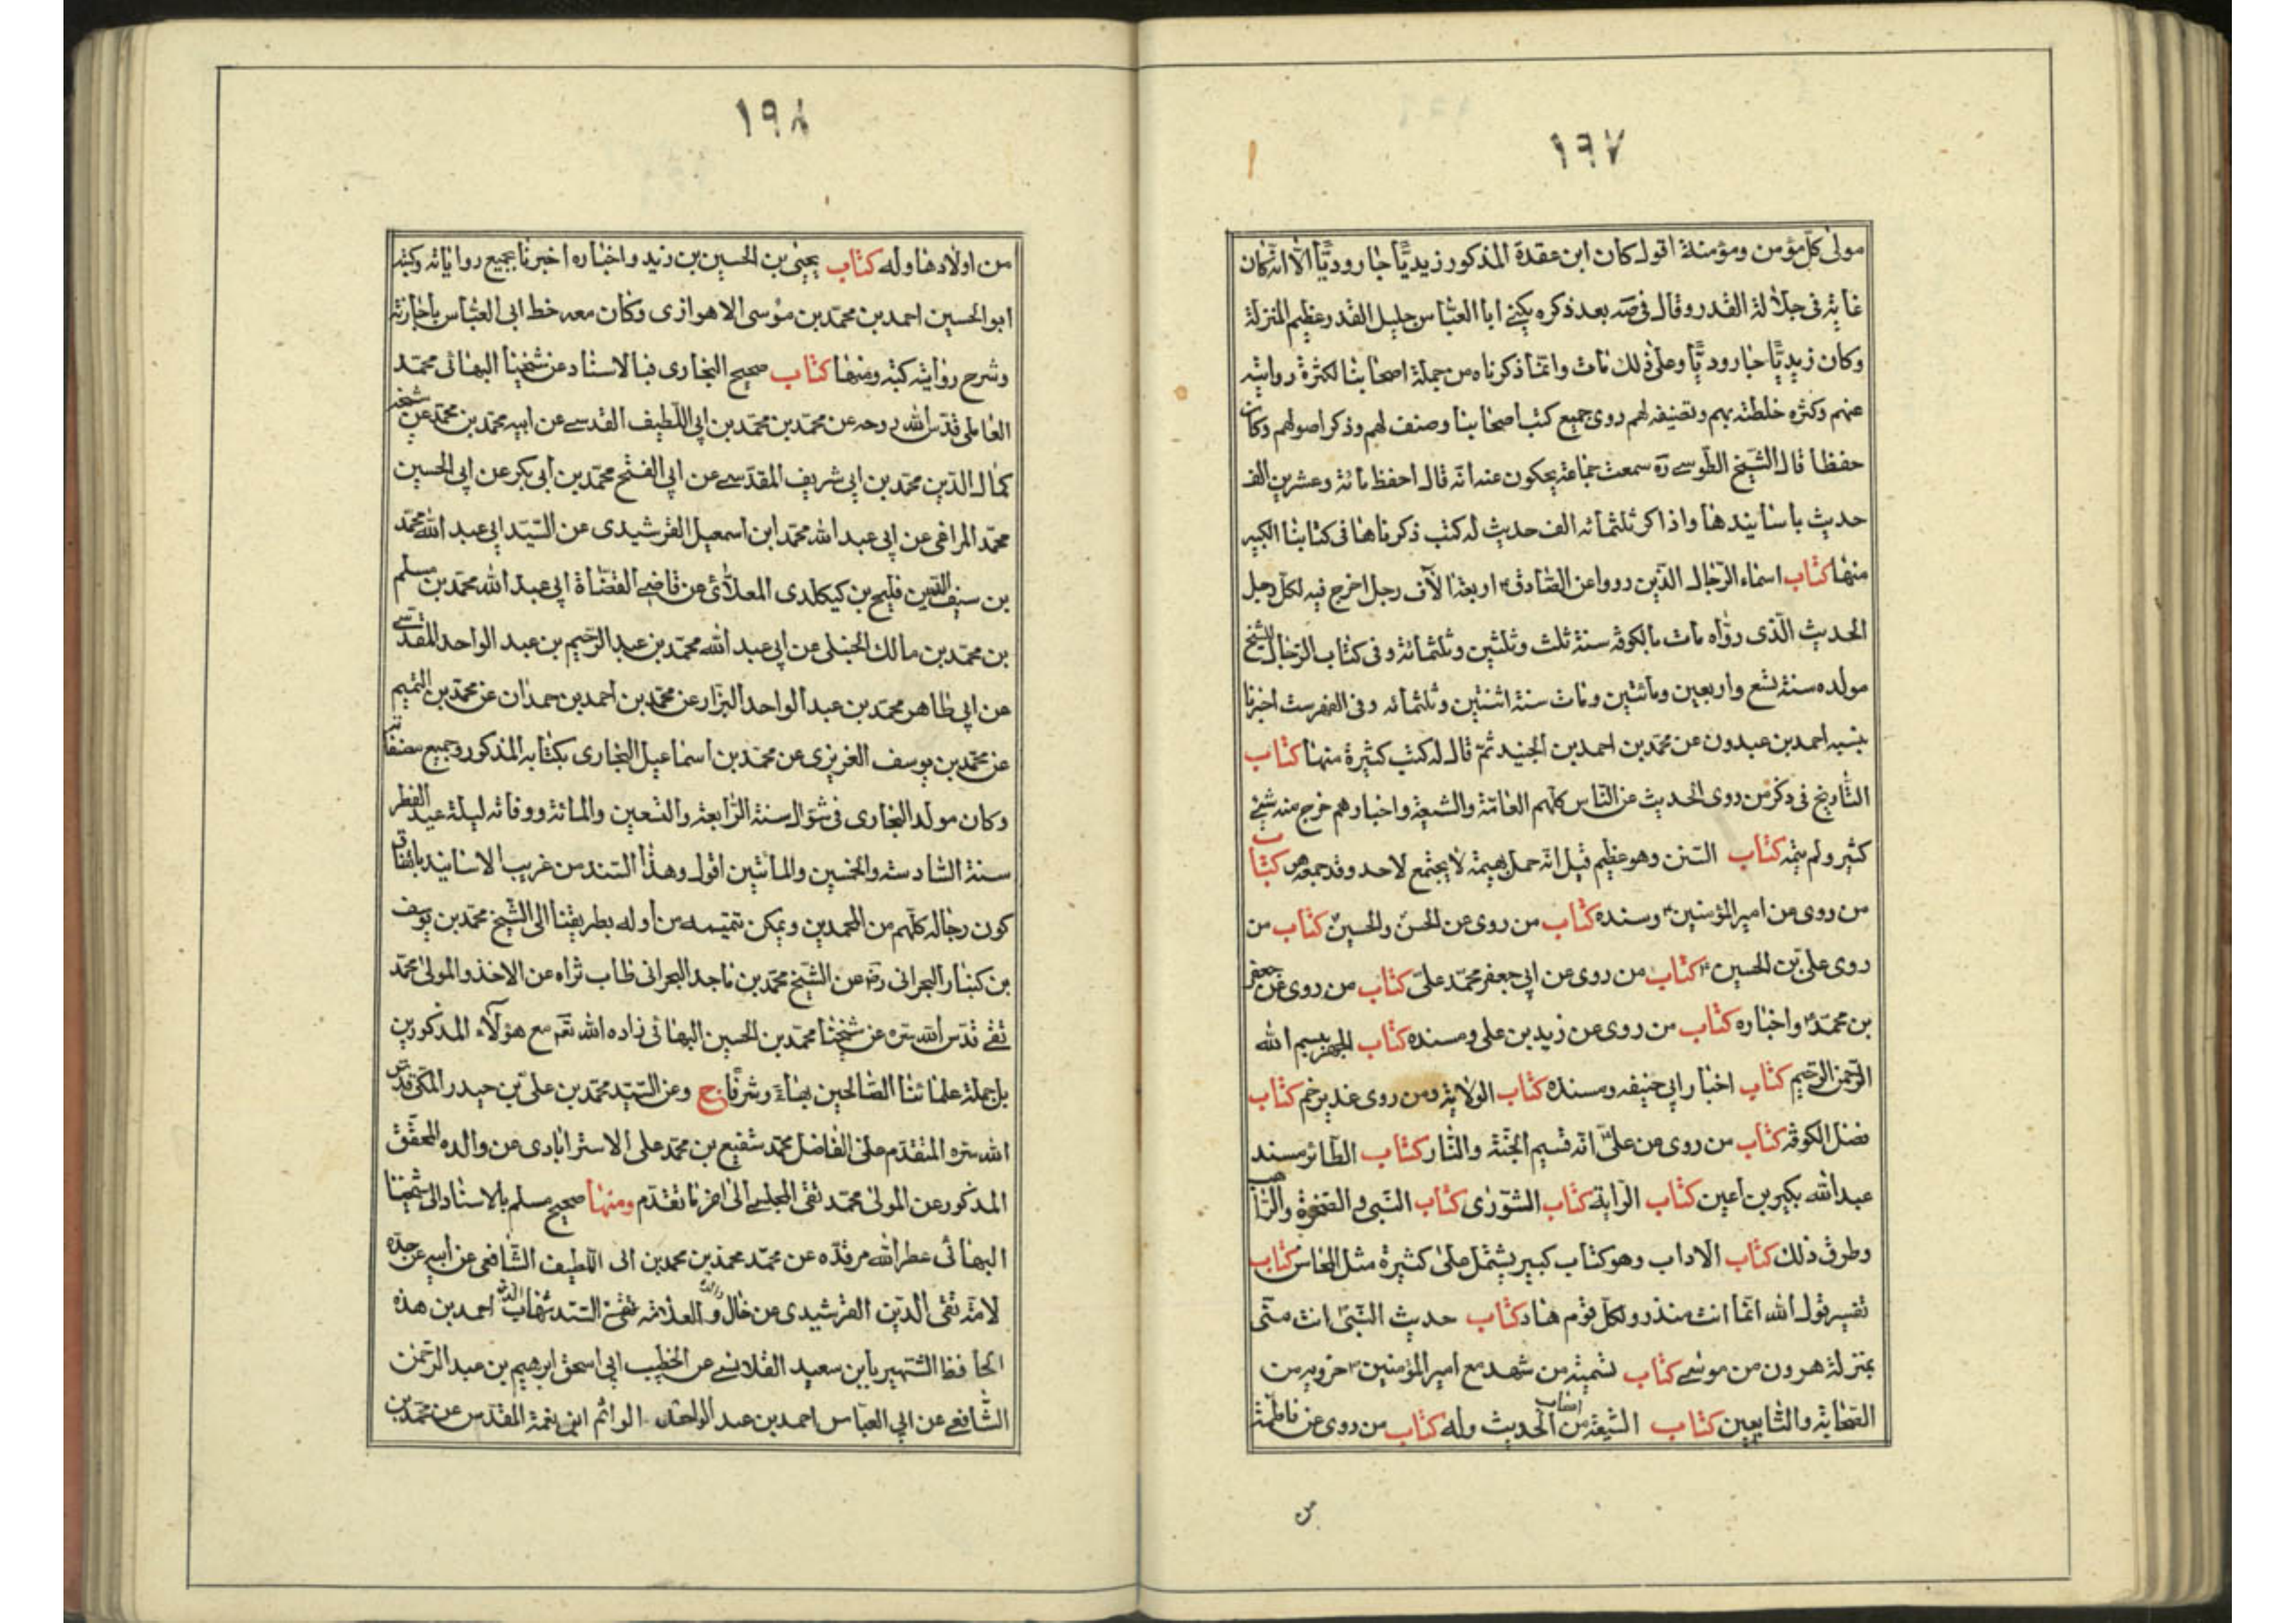 ١٩٧
مولى كل مؤمن ومؤمنة اقول كان ابن عقدة المذكور زيديًّا جاروديًّا الا انه كان
غاية فى جلالة القدر وقال فى صه بعد ذكره يكنى ابا العباس جليل القدر عظيم المنزلة
وكان زيديًّا جاروديًّا وعلى ذلك مات وانما ذكرناه من جملة اصحابنا لكثرة روايته
عنهم وكثره خلطته بهم وتصنيفه لهم روى جميع كتب اصحابنا وصنف لهم وذكر اصولهم وكان
حفظا قال الشيخ الطوسى ره سمعت جماعة يحكون عنه انه قال احفظ مائة وعشرين الف
حديث باسانيدها واذاكر ثلثمائه الف حديث له كتب ذكرناها فى كتابنا الكبير
منها كتاب اسماء الرجال الذين رووا عن الصادق ع اربعة الآف رجل اخرج فيه لكل رجل
الحديث الذى رواه مات بالكوفة سنة ثلث وثلثين وثلثمائة وفى كتاب الرجال للشيخ
مولده سنة تسع واربعين ومائتين ومات سنة اثنتين وثلثمائه وفى الفهرست اخبرنا
بنسبه احمد بن عبدون عن محمد بن احمد بن الجنيد ثم قال له كتب كثيرة منها كتاب
التاريخ فى ذكر من روى الحديث عن الناس كلهم العامة والشيعة واخبارهم خرج منه شئ
كثير ولم يتمه كتاب السنن وهو عظيم قيل انه حمل بهيمة لا يجتمع لاحد وقد جمعه هو كتاب
من روى عن امير المؤمنين ع ومسنده كتاب من روى عن الحسن والحسين كتاب من
روى على بن الحسين ع كتاب من روى عن ابى جعفر محمد على كتاب من روى عن جعفر
بن محمد ع واخباره كتاب من روى عن زيد بن على ومسنده كتاب الجهر ببسم الله
الرحمن الرحيم كتاب اخبار ابى حنيفه ومسنده كتاب الولاية ومن روى غدير خم كتاب
فضل الكوفة كتاب من روى عن على انه قسيم الجنة والنار كتاب الطائر مسند
عبد الله بكير بن اعين كتاب الراية كتاب الشورى كتاب النبى و الصخرة والراهب
وطرق ذلك كتاب الاداب وهو كتاب كبير يشتمل على كثيرة مثل المحاسن كتاب
تفسير قول الله انما انت منذر ولكل قوم هاد كتاب حديث النبى انت منى
بمنزلة هرون من موسى كتاب تسمية من شهد مع امير المؤمنين ع حروبه من
الصحابة والتابعين كتاب الشيعة من اصحاب الحديث وله كتاب من روى عن فاطمة
من
١٩٨
من اولادها وله كتاب يحيى بن الحسين بن زيد واخباره اخبرنا بجميع رواياته وكتبه
ابو الحسين احمد بن محمد بن موسى الاهوازى وكان معه خط ابى العباس باجازته
وشرح رواية كتبه ومنها كتاب صحيح البخارى فبالاسناد عن شيخنا البهائى محمد
العاملى قدس الله روحه عن محمد بن محمد بن محمد بن ابى اللطيف القدسى عن ابيه محمد بن محمد عن شيخه
كمال الدين محمد بن ابى شريف المقدسى عن ابى الفتح محمد بن ابى بكر عن ابى الحسين
محمد المراغى عن ابى عبد الله محمد ابن اسمعيل القرشيدى عن السيد ابى عبد الله محمد
بن سيف الدين فليح بن كيكلدى العلائى عن قاضى القضاة ابى عبد الله محمد بن مسلم
بن محمد بن مالك الحنبلى عن ابى عبد الله محمد بن عبد الرحيم بن عبد الواحد المقدسى
عن ابى طاهر محمد بن عبد الواحد البزار عن محمد بن احمد بن حمدان عن محمد بن اليتيم
عن محمد بن يوسف الغريزى عن محمد بن اسماعيل البخارى بكتابه المذكور وجميع مصنفاته
وكان مولد البخارى فى شوال سنة الرابعة والتسعين والمائة ووفاته ليلة عيد الفطر
سنة السادسة والخمسين والمائتين اقول وهذا السند من غريب الاسانيد باتفاق
كون رجاله كلهم من المحمدين ويمكن تتميمه من اوله بطريقنا الى الشيخ محمد بن يوسف
بن كنبار البحرانى ره عن الشيخ محمد بن ماجد البحرانى طاب ثراه عن الاخذ والمولى محمد
تقى قدس الله سره عن شيخنا محمد بن الحسين البهائى زاده الله نعم مع هؤلاء المذكورين
بل جملة علمائنا الصالحين بهاء وشرفا ح وعن السيد محمد بن على بن حيدر المكى قدس
الله سره المتقدم على الفاضل محمد شفيع بن محمد على الاسترابادى عن والده المحقق
المذكور عن المولى محمد تقى المجلسى الى اخر ما تقدم ومنها صحيح مسلم بالاسناد الى شيخنا
البهائى عطر الله مرقده عن محمد محمد بن محمد بن ابى اللطيف الشافعى عن ابيه عن جده
لامه تقى الدين القرشيدى عن خال والده العلامة السيد شهاب الدين احمد بن هذه
الحافظ الشهير بابن سعيد القلانسى عن الخطيب ابى اسحق ابرهيم بن عبد الرحمن
الشافعى عن ابى العباس احمد بن عبد الواحد الوائم ابن نعمة المقدس عن محمد بن